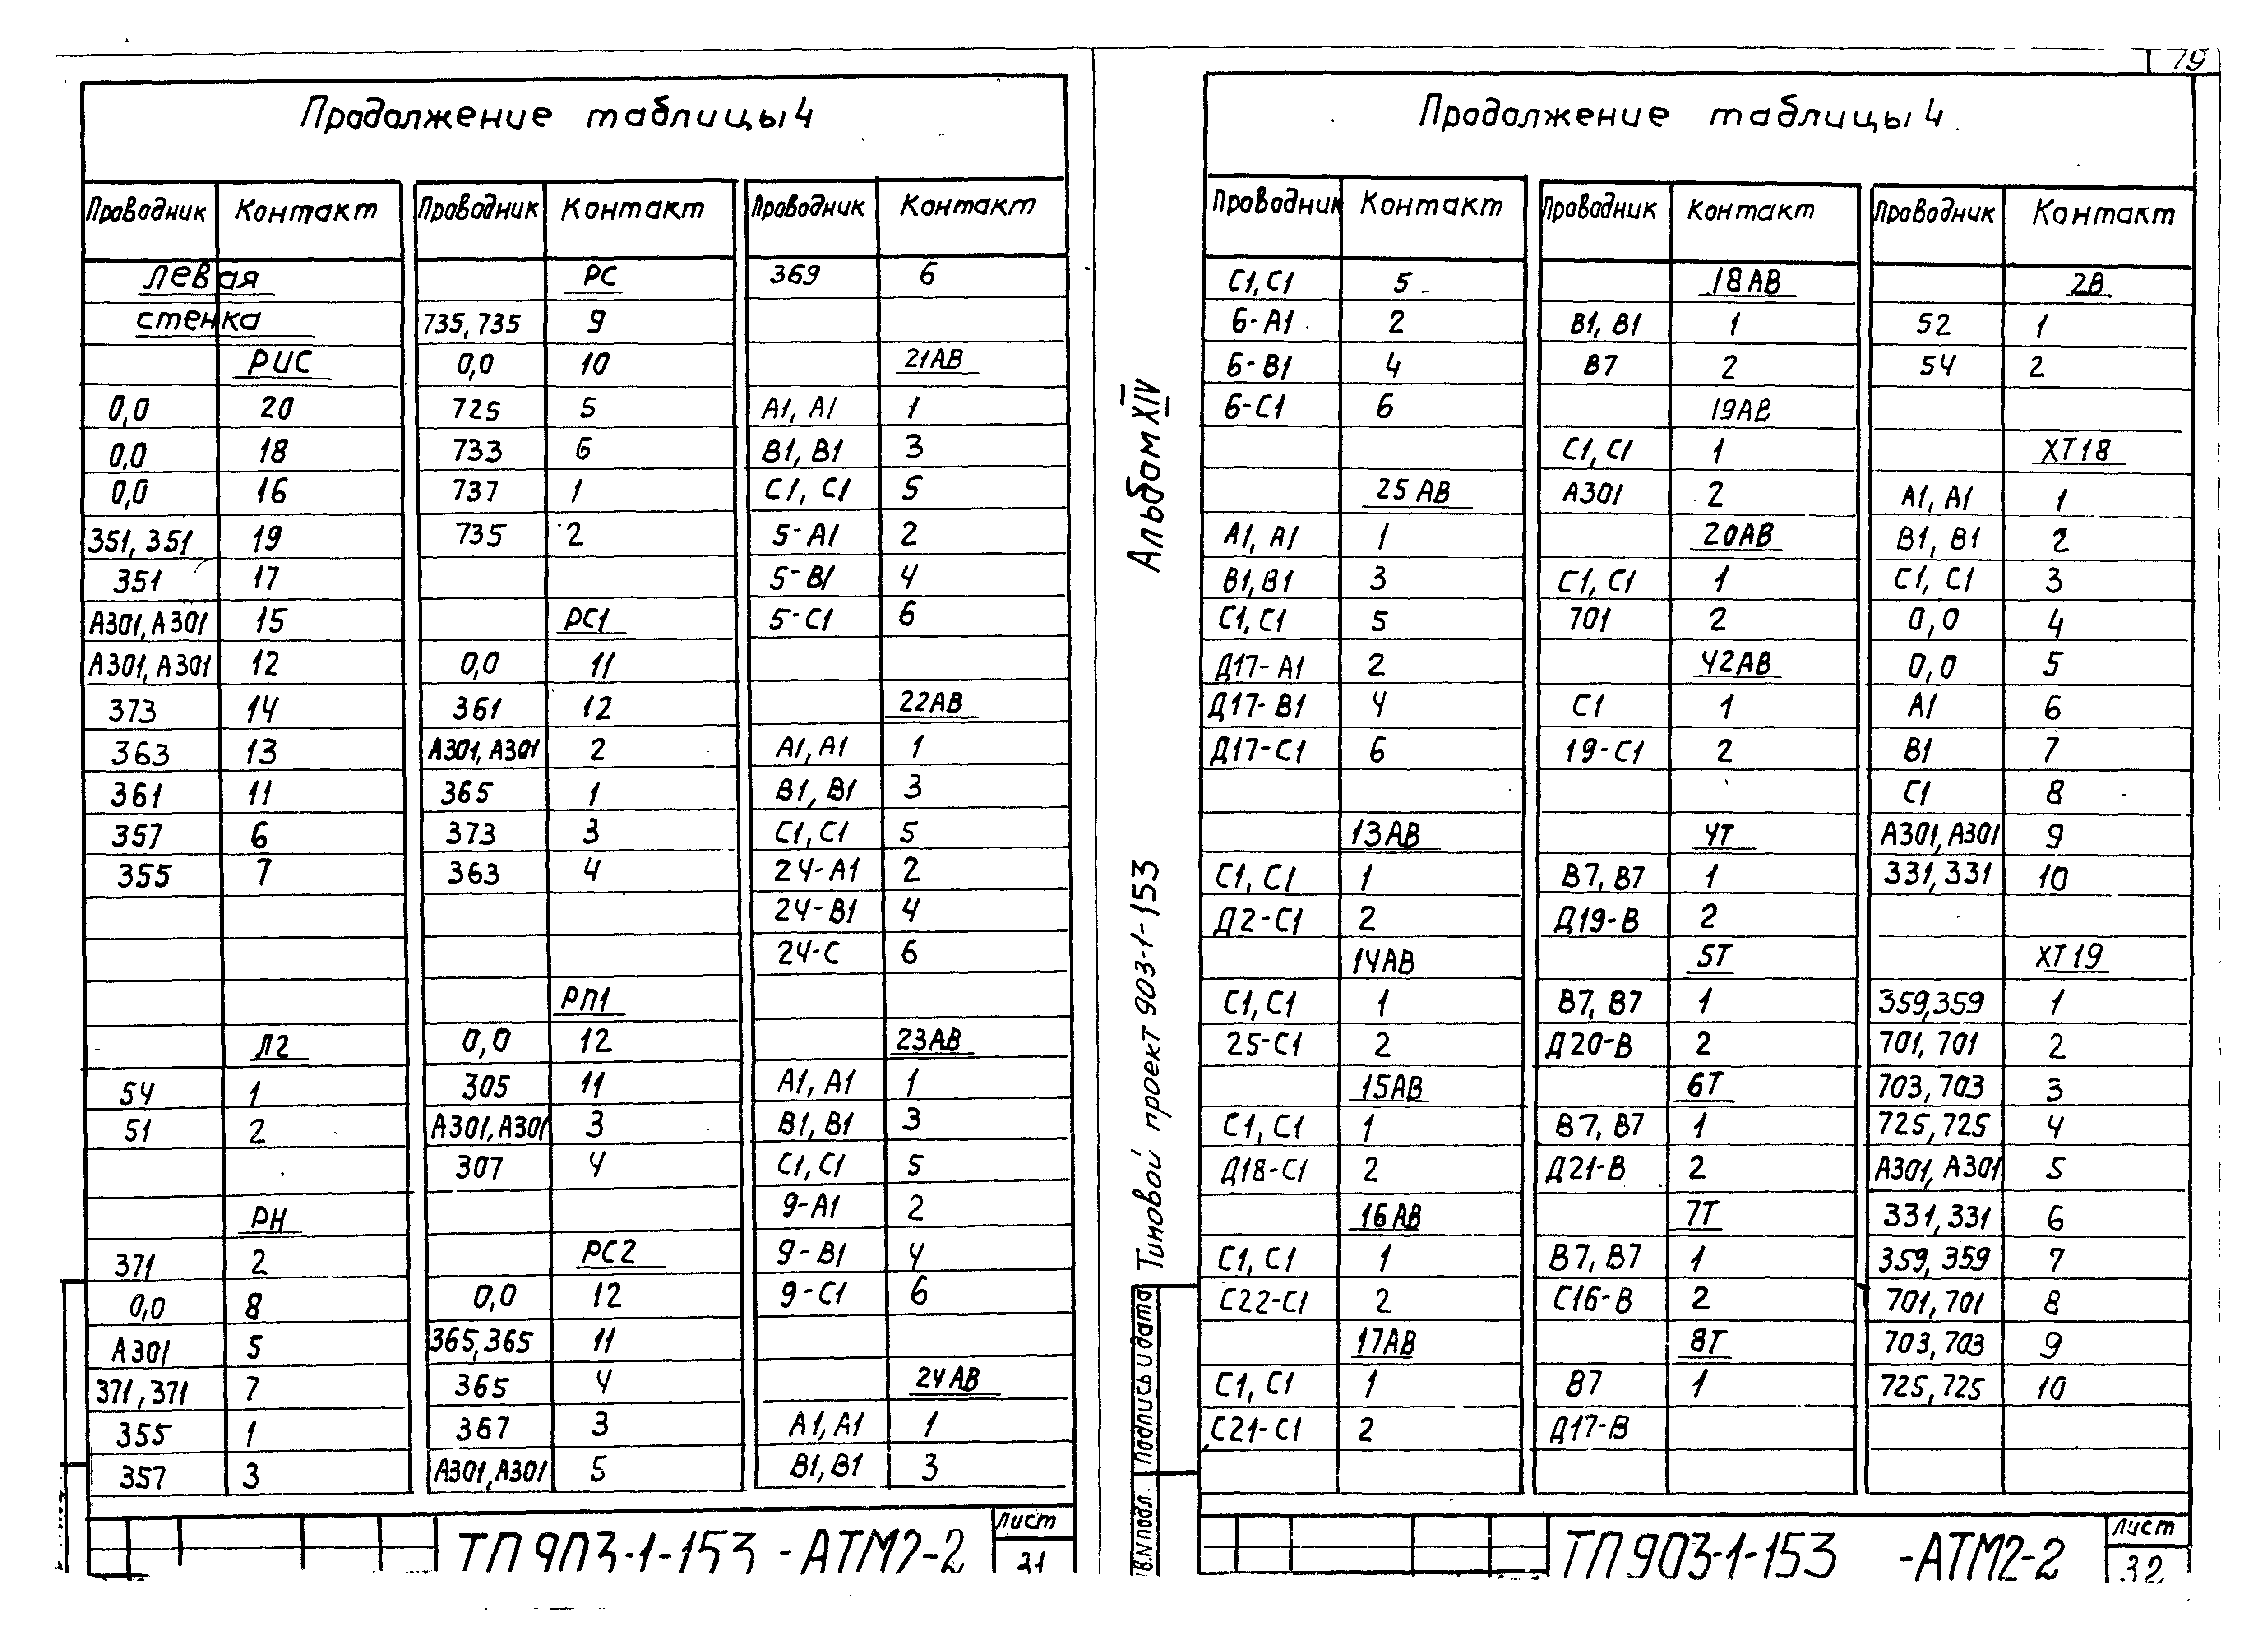 19
Продолжение таблицы 4
Проводник Контакт Проводник Контакт Проводник Контакт
левая РС 369 6
стенка 735, 735 9
РИС 0,0 10 21АВ
0,0 20 725 5 А1, А1 1
0,0 18 733 6 В1, В1 3
0,0 16 737 1 С1, С1 5
351, 351 19 735 2 5-А1 2
351 17 5-В1 4
А301, А301 15 РС1 5-С1 6
А301, А301 12 0,0 11
373 14 361 12 22АВ
363 13 А301, А301 2 А1, А1 1
361 11 365 1 В1, В1 3
357 6 373 3 С1, С1 5
355 7 363 4 24-А1 2
24-В1 4
24-С 6
РП1
Л2 0,0 12 23АВ
54 1 305 11 А1, А1 1
51 2 А301, А301 3 В1, В1 3
307 4 С1, С1 5
РН 9-А1 2
371 2 РС2 9-В1 4
0,0 8 0,0 12 9-С1 6
А301 5 365,365 11
371,371 7 365 4 24АВ
355 1 367 3 А1, А1 1
357 3 А301, А301 5 В1, В1 3
ТП 903-1-153 -АТМ2-2
Лист
31
Альбом XIV
Типовой проект 903-1-153
Подпись и дата
В.N подл.
Продолжение таблицы 4
Проводник Контакт Проводник Контакт Проводник Контакт
С1, С1 5 18АВ 2В
6-А1 2 В1, В1 1 52 1
6-В1 4 В7 2 54 2
6-С1 6 19АВ
С1, С1 1 ХТ18
25АВ А301 2 А1, А1 1
А1, А1 1 20АВ В1, В1 2
В1, В1 3 С1, С1 1 С1, С1 3
С1, С1 5 701 2 0,0 4
Д17-А1 2 42АВ 0,0 5
Д17-В1 4 С1 1 А1 6
Д17-С1 6 19-С1 2 В1 7
С1 8
13АВ 4Т А301, А301 9
С1, С1 1 В7, В7 1 331,331 10
Д2-С1 2 Д19-В 2
14АВ 5Т ХТ19
С1, С1 1 В7, В7 1 359,359 1
25-С1 2 Д20-В 2 701, 701 2
15АВ 6Т 703, 703 3
С1, С1 1 В7, В7 1 725,725 4
Д18-С1 2 Д21-В 2 А301, А301 5
16АВ 7Т 331,331 6
С1, С1 1 В7, В7 1 359, 359 7
С22-С1 2 С16-В 2 701, 701 8
17АВ 8Т 703, 703 9
С1, С1 1 В7 1 725, 725 10
С21-С1 2 Д17-В
ТП 903-1-153 -АТМ2-2
Лист
32